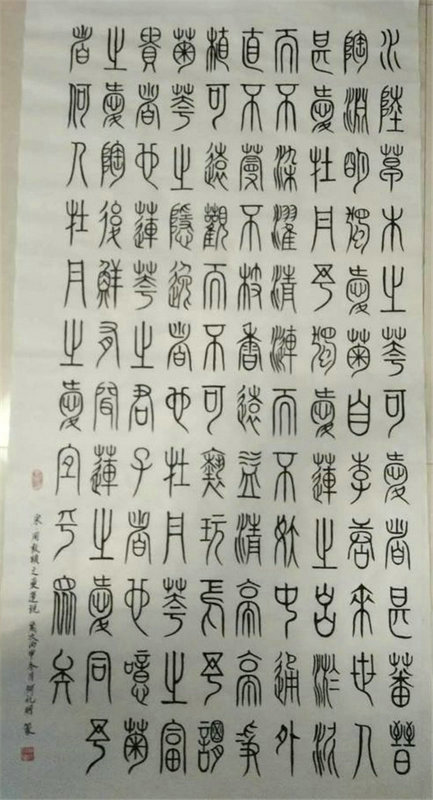 水陸草木之華可愛者甚蕃晉
陶淵明獨愛菊自李唐來世人
甚愛牡丹予獨愛蓮之出淤泥
而不染濯清漣而不妖中通外
直不蔓不枝香遠益清亭亭淨
植可遠觀而不可褻玩焉予謂
菊華之隱逸者也牡丹華之富
貴者也蓮華之君子者也噫菊
之愛陶後鮮有聞蓮之愛同予
者何人牡丹之愛宜乎眾矣
宋周敦頤之愛蓮說 歲次丙申冬月 篆